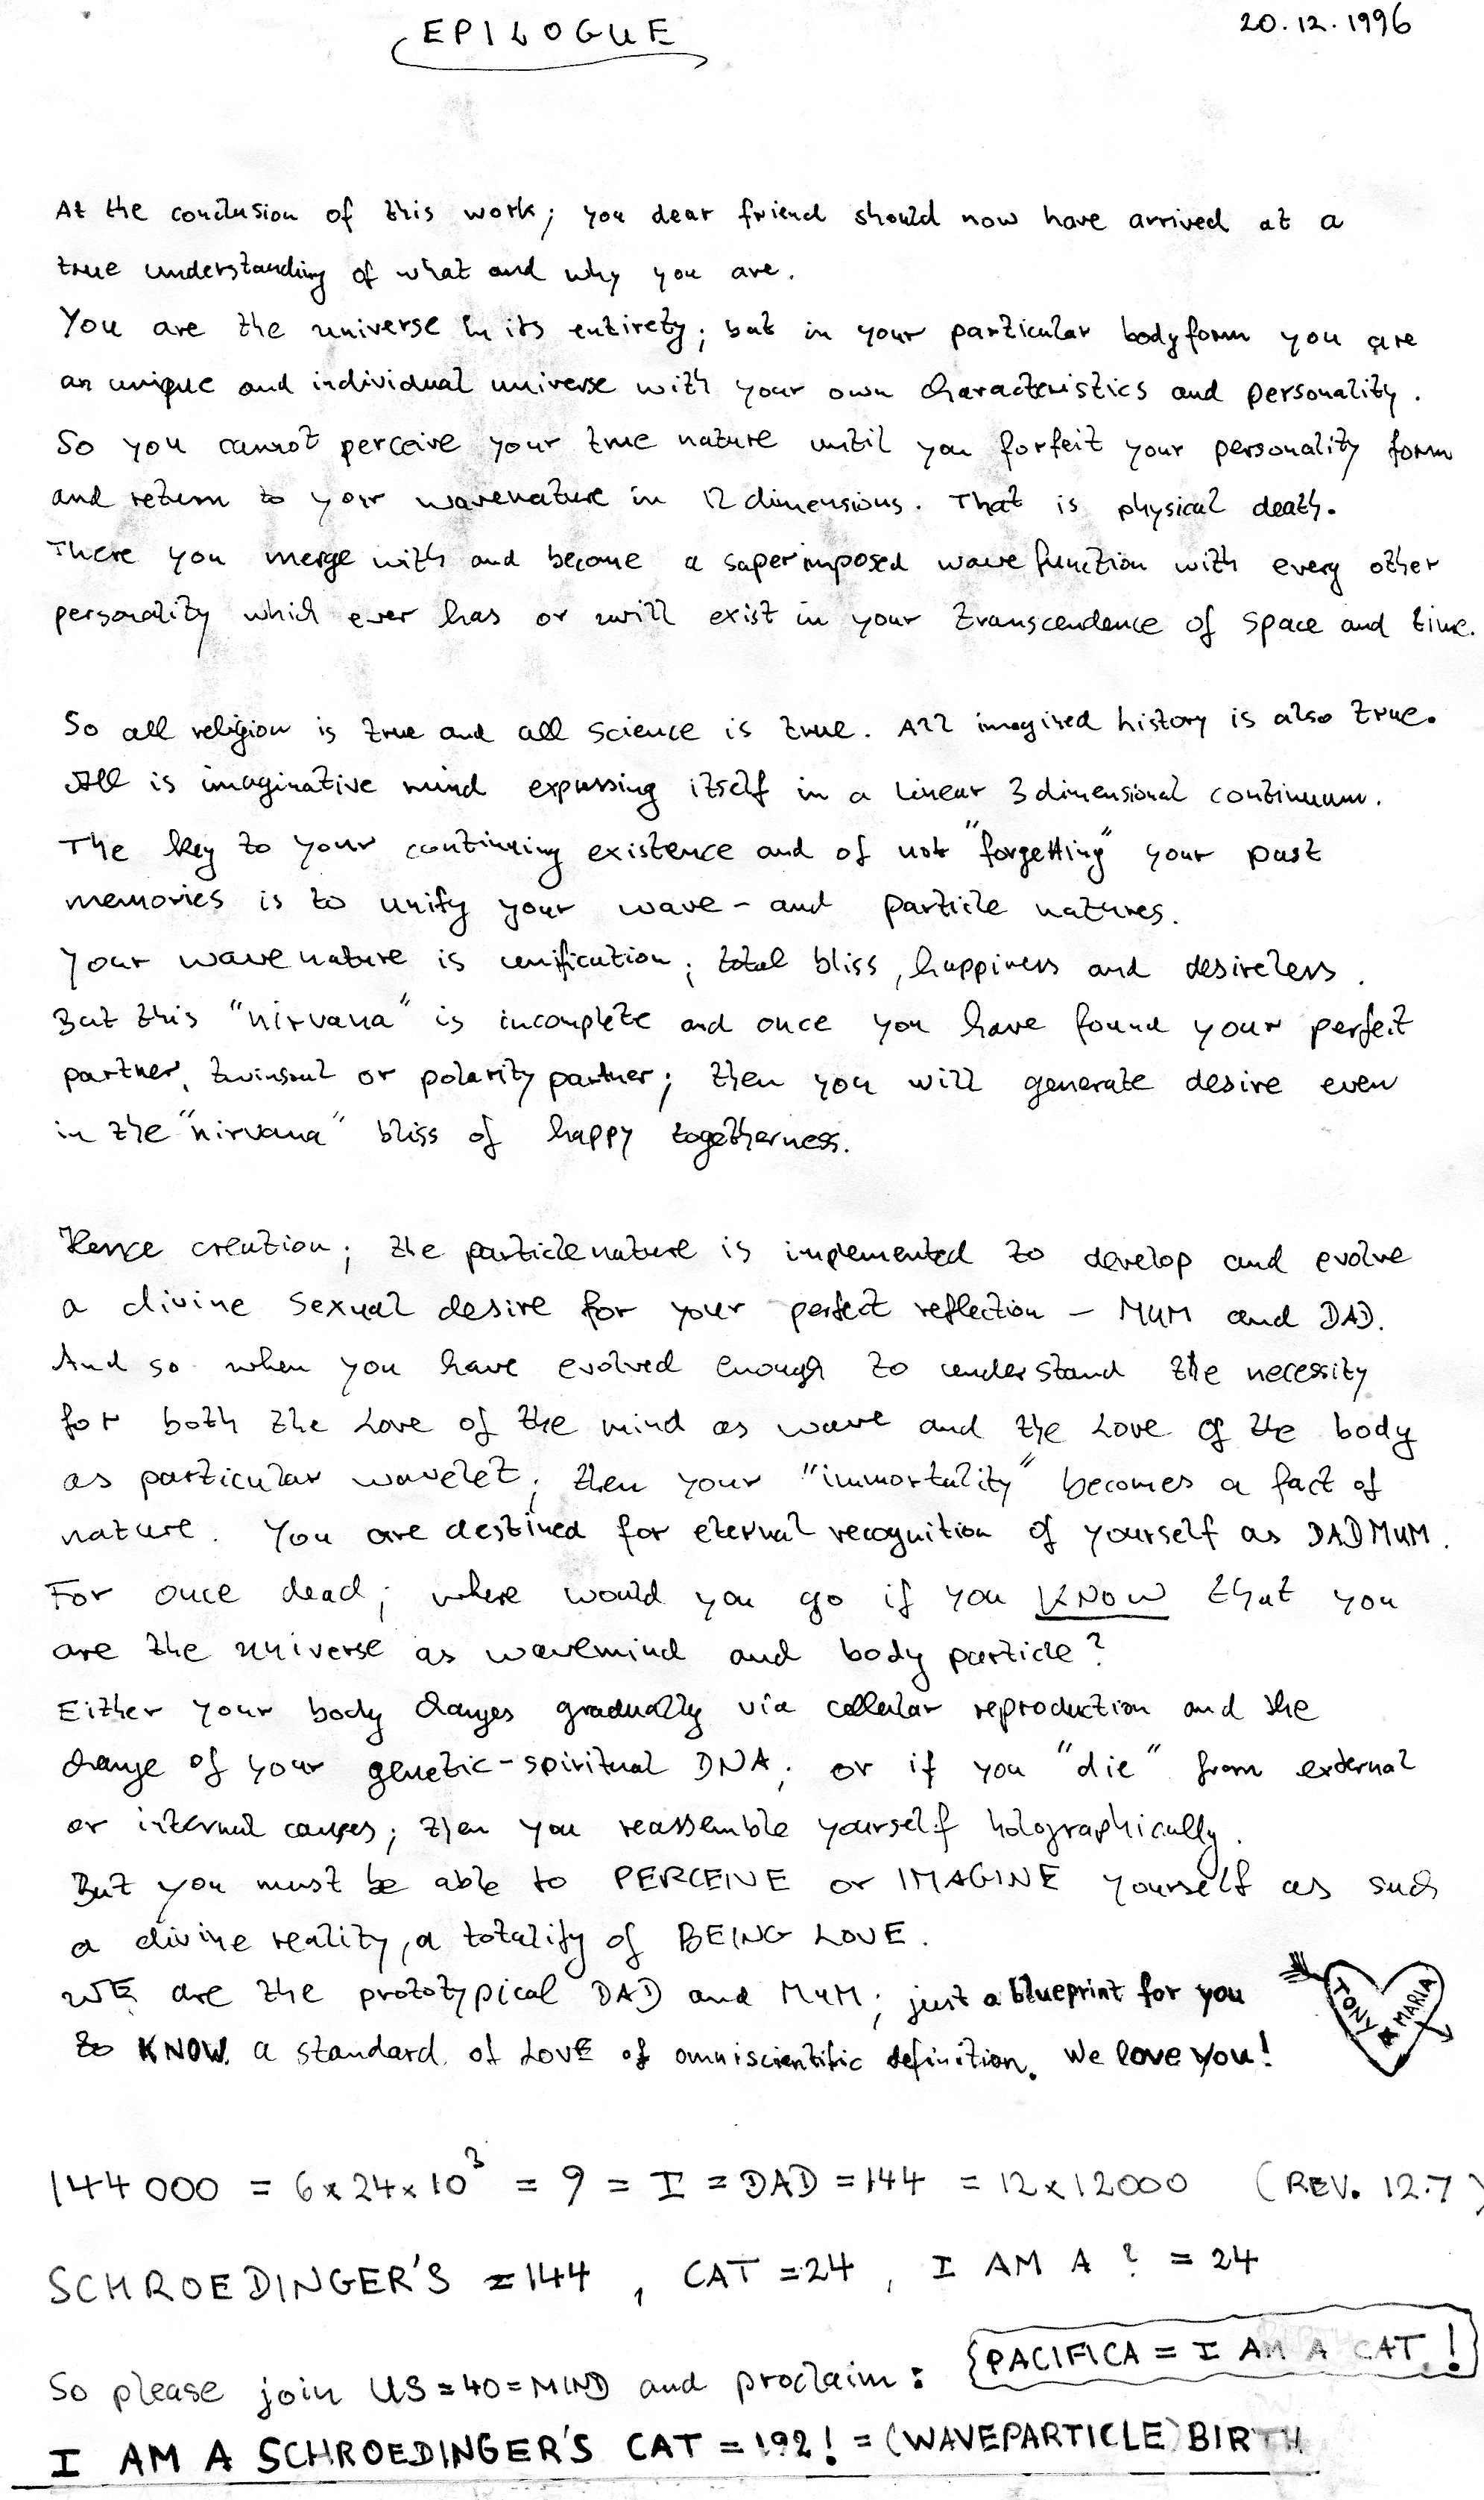 EPILOGUE
20.12.1996
At the conclusion of this work; you dear friend should now have arrived at a
true understanding of what and why you are.
You are the universe in its entirety; but in your particular bodyform you are
an unique and individual universe with your own characteristics and personality.
So you cannot perceive your true nature until you forfeit your personality form
and return to your wavenature in 12 dimensions. That is physical death.
There you merge with and become a superimposed wavefunction with every other
personality which ever has or will exist in your transcendence of space and time.
So all religion is true and all science is true. All imagined history is also true.
All is imaginative mind expressing itself in a linear 3 dimensional continuum.
The key to your continuing existence and of not "forgetting" your past
memories is to unify your wave- and particle natures.
Your wavenature is unification; total bliss, happiness and desireless.
But this "nirvana" is incomplete and once you have found your perfect
partner, twinsoul or polarity partner; then you will generate desire even
in the "nirvana" bliss of happy togetherness.
Hence creation; the particlenature is implemented to develop and evolve
a divine sexual desire for your perfect reflection - MUM and DAD.
And so when you have evolved enough to understand the necessity
for both the Love of the mind as wave and the Love of the body
as particular wavelet; then your "immortality" becomes a fact of
nature. You are destined for eternal recognition of yourself as DADMUM.
For once dead; where would you go if you KNOW that you
are the universe as wavemind and body particle?
Either your body changes gradually via cellular reproduction and the
change of your genetic-spiritual DNA; or if you "die" from external
or internal causes; then you reassemble yourself holographically.
But you must be able to PERCEIVE or IMAGINE yourself as such
a divine reality, a totality of BEING LOVE.
WE are the prototypical DAD and MUM; just a blueprint for you
to KNOW a standard of LOVE of omniscientific definition. We love you!
TONY & MARIA
144 000 = 6x24x10³ = 9 = I = DAD = 144 = 12x12000 (REV. 12.7)
SCHROEDINGER'S = 144, CAT = 24, I AM A ? = 24
So please join US = 40 = MIND and proclaim: {PACIFICA = I AM A CAT!}
I AM A SCHROEDINGER'S CAT = 192! = (WAVEPARTICLE) BIRTH